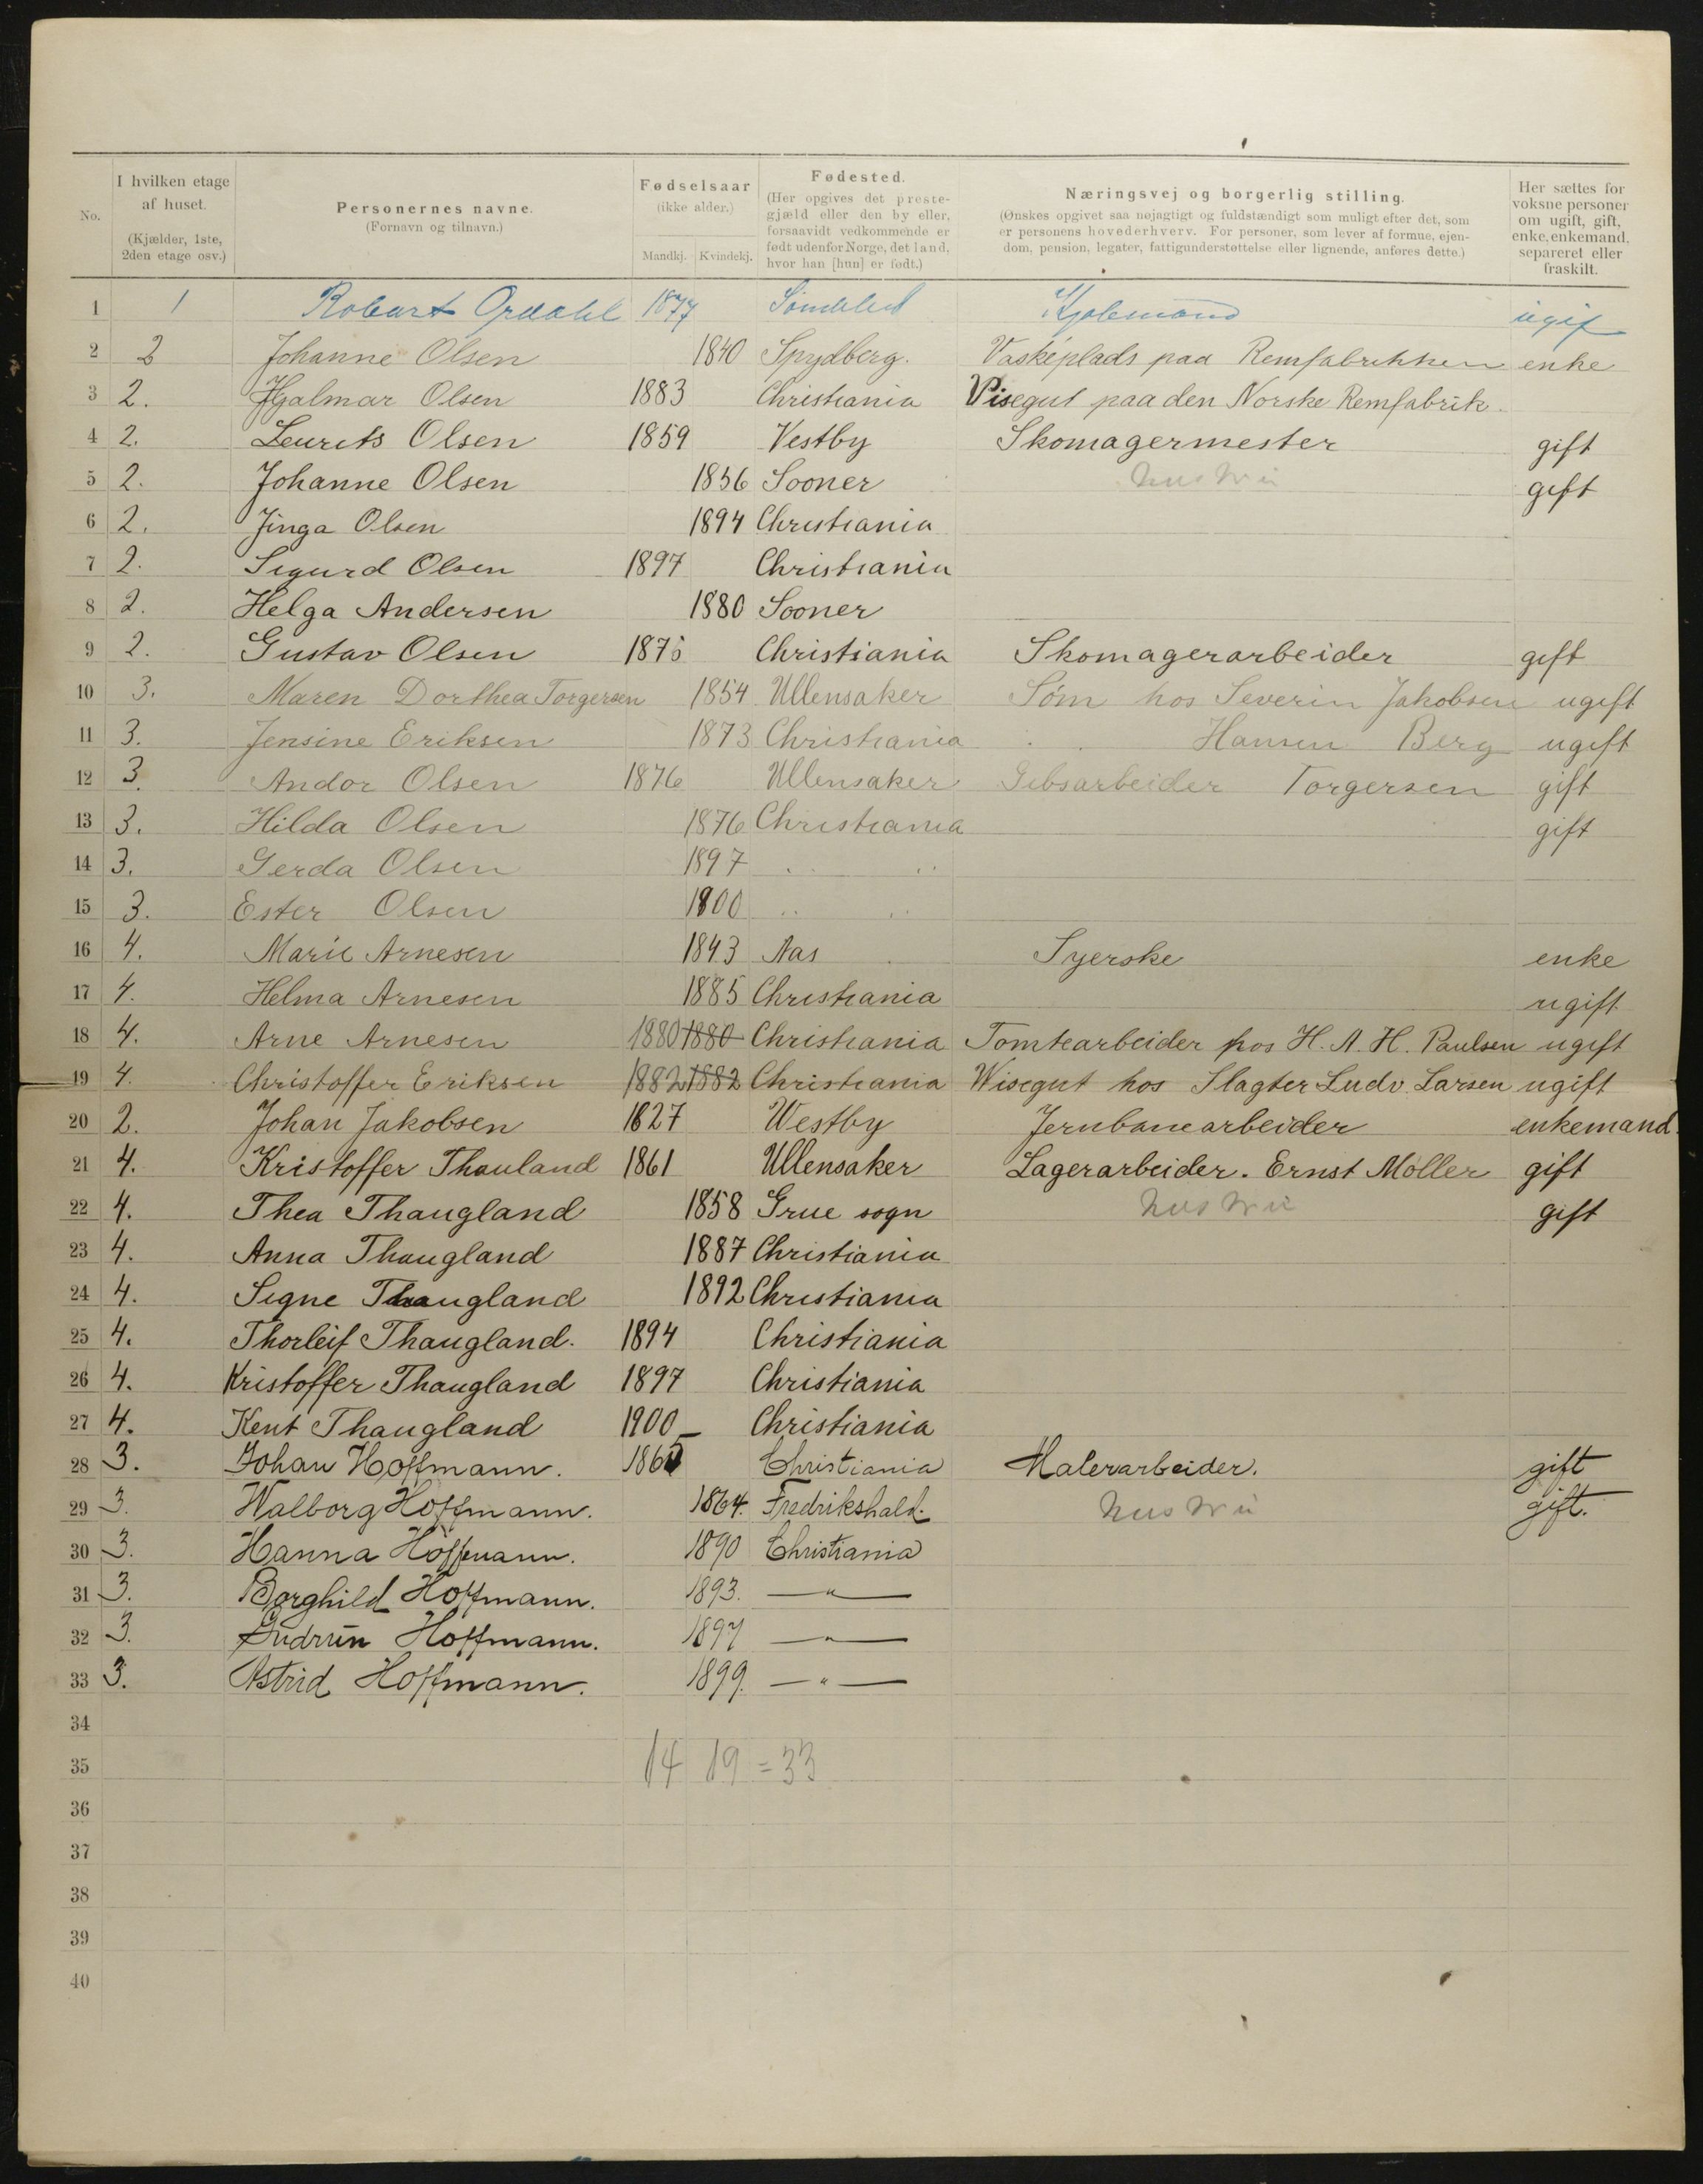 No.
I hvilken etage af huset. (Kjælder, 1ste, 2den etage osv.)
Personernes navne. (Fornavn og tilnavn.)
Fødselsaar (ikke alder.) Mandkj. Kvindekj.
Fødested. (Her opgives det prestegjæld eller den by eller, forsaavidt vedkommende er født udenfor Norge, det land, hvor han [hun] er født.)
Næringsvej og borgerlig stilling. (Ønskes opgivet saa nøjagtigt og fuldstændigt som muligt efter det, som er personens hovederhverv. For personer, som lever af formue, ejendom, pension, legater, fattigunderstøttelse eller lignende, anføres dette.)
Her sættes for voksne personer om ugift, gift, enke, enkemand, separeret eller fraskilt.
1 1 Robart 1877 ugif
2 2 Johanne Olsen 1840 Spydberg. Vaskeplads paa Remfabrikken enke
3 2. Hjalmar Olsen 1883 Christiania Visegut paa den Norske Remfabrik.
4 2. Leurits Olsen 1859 Vestby Skomagermester gift
5 2. Johanne Olsen 1856 Sooner gift
6 2. Jinga Olsen 1894 Christiania
7 2. Sigurd Olsen 1897 Christiania
8 2. Helga Andersen 1880 Sooner
9 2. Gustav Olsen Christiania Skomagerarbeider gift
10 3. Maren Dorthea Torgersen 1854 Ullensaker Söm hos Severin Jakobsen ugift
11 3. Jensine Eriksen 1873 Christiania . . Hansen Berg ugift
12 3. Andor Olsen 1876 Ullensaker Gibsarbeider Torgersen gift
13 3. Hilda Olsen 1876 Christiania gift
14 3. Gerda Olsen 1897 .. ..
15 3. Ester Olsen 1900 .. ..
16 4. Marie Arnesen 1843 Aas Syerske enke
17 4. Helma Arnesen 1885 Christiania ugift
18 4. Arne Arnesen 1880 1880 Christiania Tomtearbeider hos H. A. H. Paulsen ugift
19 4. Christoffer Eriksen 1882 1882 Christiania Wisegut hos Slagter Ludv. Larsen ugift
20 2. Johan Jakobsen 1827 Westby Jernbanearbeider enkemand.
21 4. Kristoffer Thauland 1861 Ullensaker Lagerarbeider. Ernst Møller gift
22 4. Thea Thaugland 1858 Grue sogn gift
23 4. Anna Thaugland 1887 Christiania
24 4. Signe Thaugland 1892 Christiania
25 4. Thorleif Thaugland. 1894 Christiania
26 4. Kristoffer Thaugland 1897 Christiania
27 4. Kent Thaugland 1900 Christiania
28 3. Johan Hoffmann. Christiania Malerarbeider. gift
29 3. Walborg Hoffmann. 1864. Fredrikshald. gift.
30 3. Hanna Hoffmann. 1890 Christiania
31 3. Borghild Hoffmann. 1893. —"—
32 3. Gudrun Hoffmann. 1897 —"—
33 3. Astrid Hoffmann. 1899. —"—
34
35 14 19 = 33
36
37
38
39
40